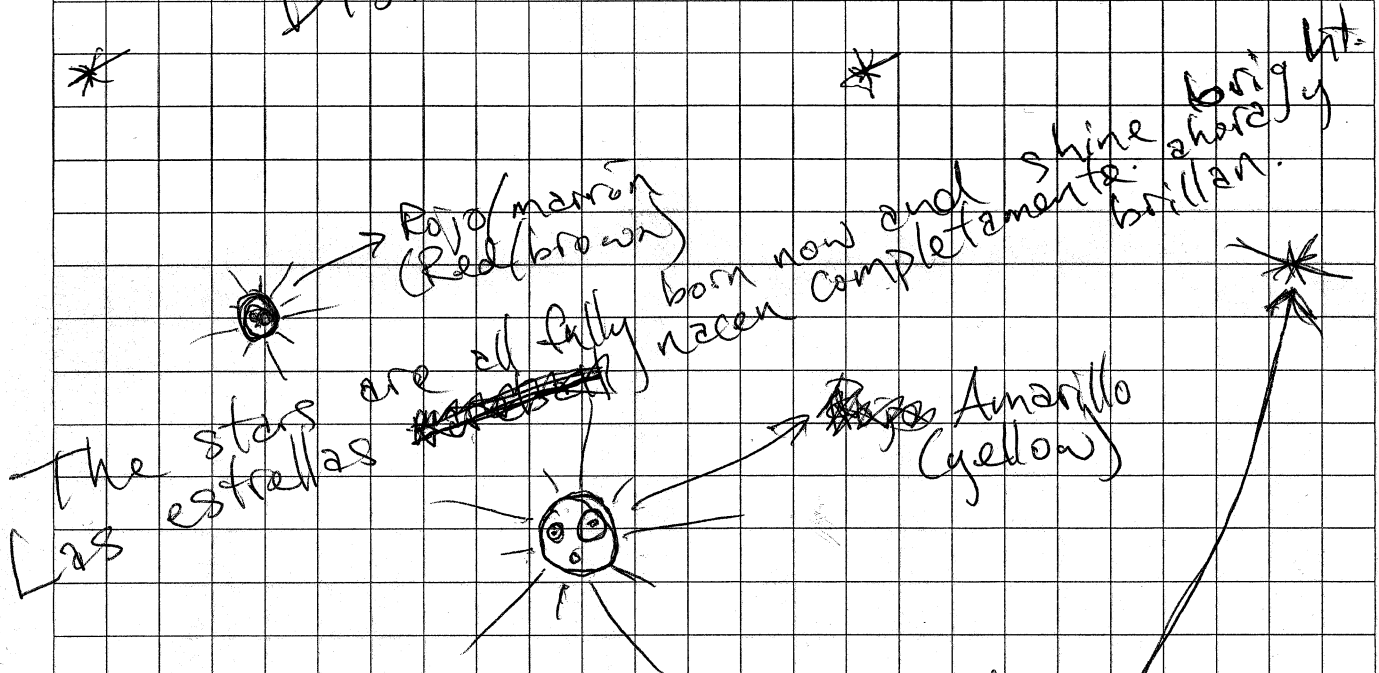 Rojo/marrón
(Red/brown)
The stars are all fully born now and shine brightly.
Las estrellas nacen completamente. ahora brillan.
Amarillo
(yellow)